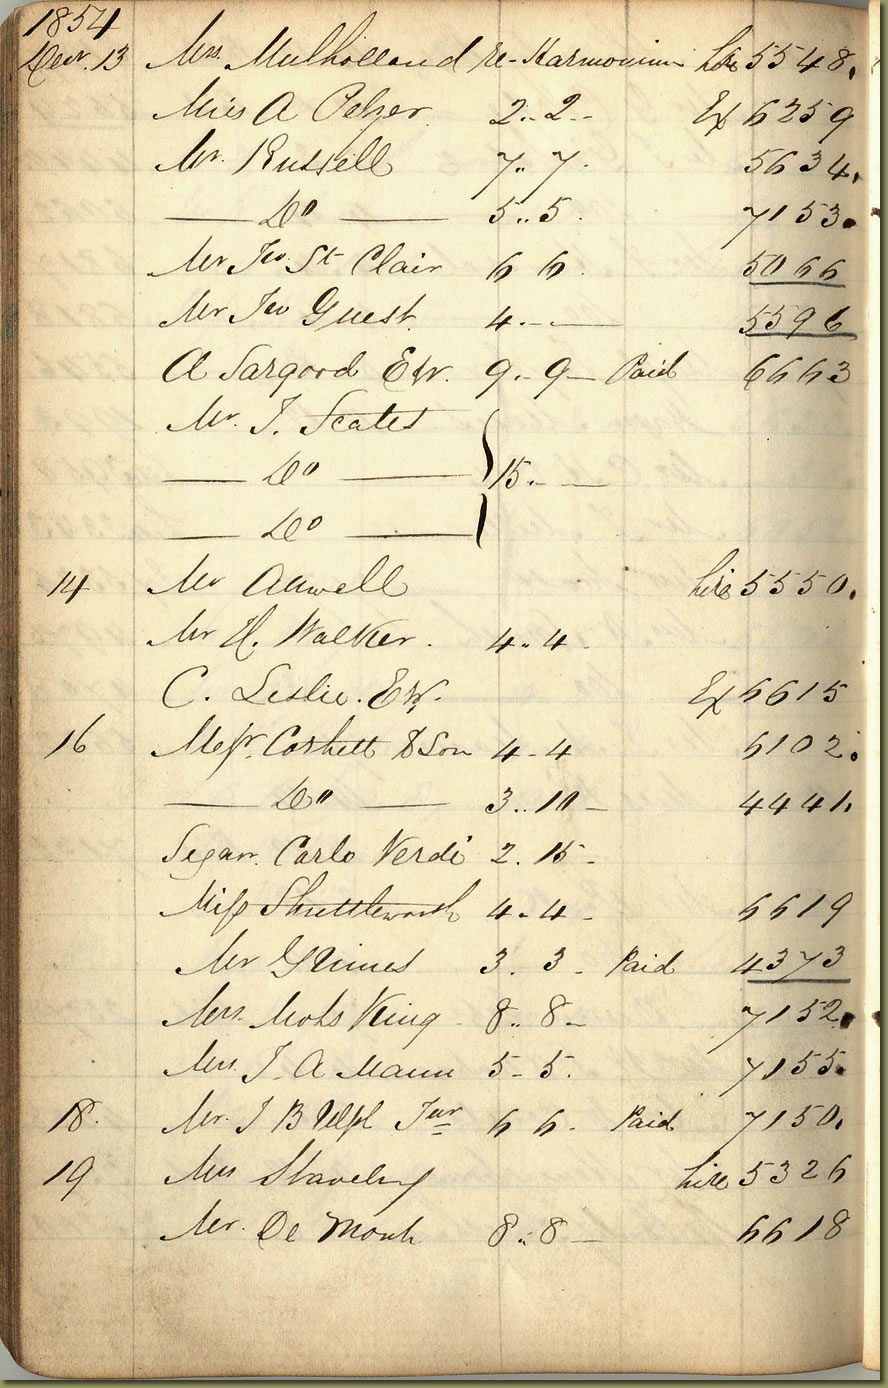 1854
Decr. 13 Mrs. Mulholland re-Harmonium hire 5548.
Miss A Pelzer 2..2.- Ex 6259
Mr. Russell 7.. 7. 5634.
Do 5.. 5. 7153.
Mr Jno St Clair 6 6. 5066
Mr Jno Guest. 4.-- 5596
A Sargood Esqr. 9.. 9- Paid 6663
Mr. J. Scates
Do 15.--
Do
14 Mr Atwell hire 5550.
Mr H. Walker. 4.. 4.
C. Leslie. Esqr. Ex 6615
16 Messr. Corbett & Son 4-4 6102.
Do 3.. 10- 4441.
Signr. Carlo Verdi 2. 15-
Miss Shuttleworth 4.. 4- 6619
Mr Grimes 3. 3- Paid 4373
Mrs. King 8.. 8- 7152.
Mrs. J. A Mann 5- 5. 7155.
18. Mr. J B Junr 6 6- Paid 7150.
19 Mrs Staveley hire 5326
Mr. De Monk 8.. 8- 6618